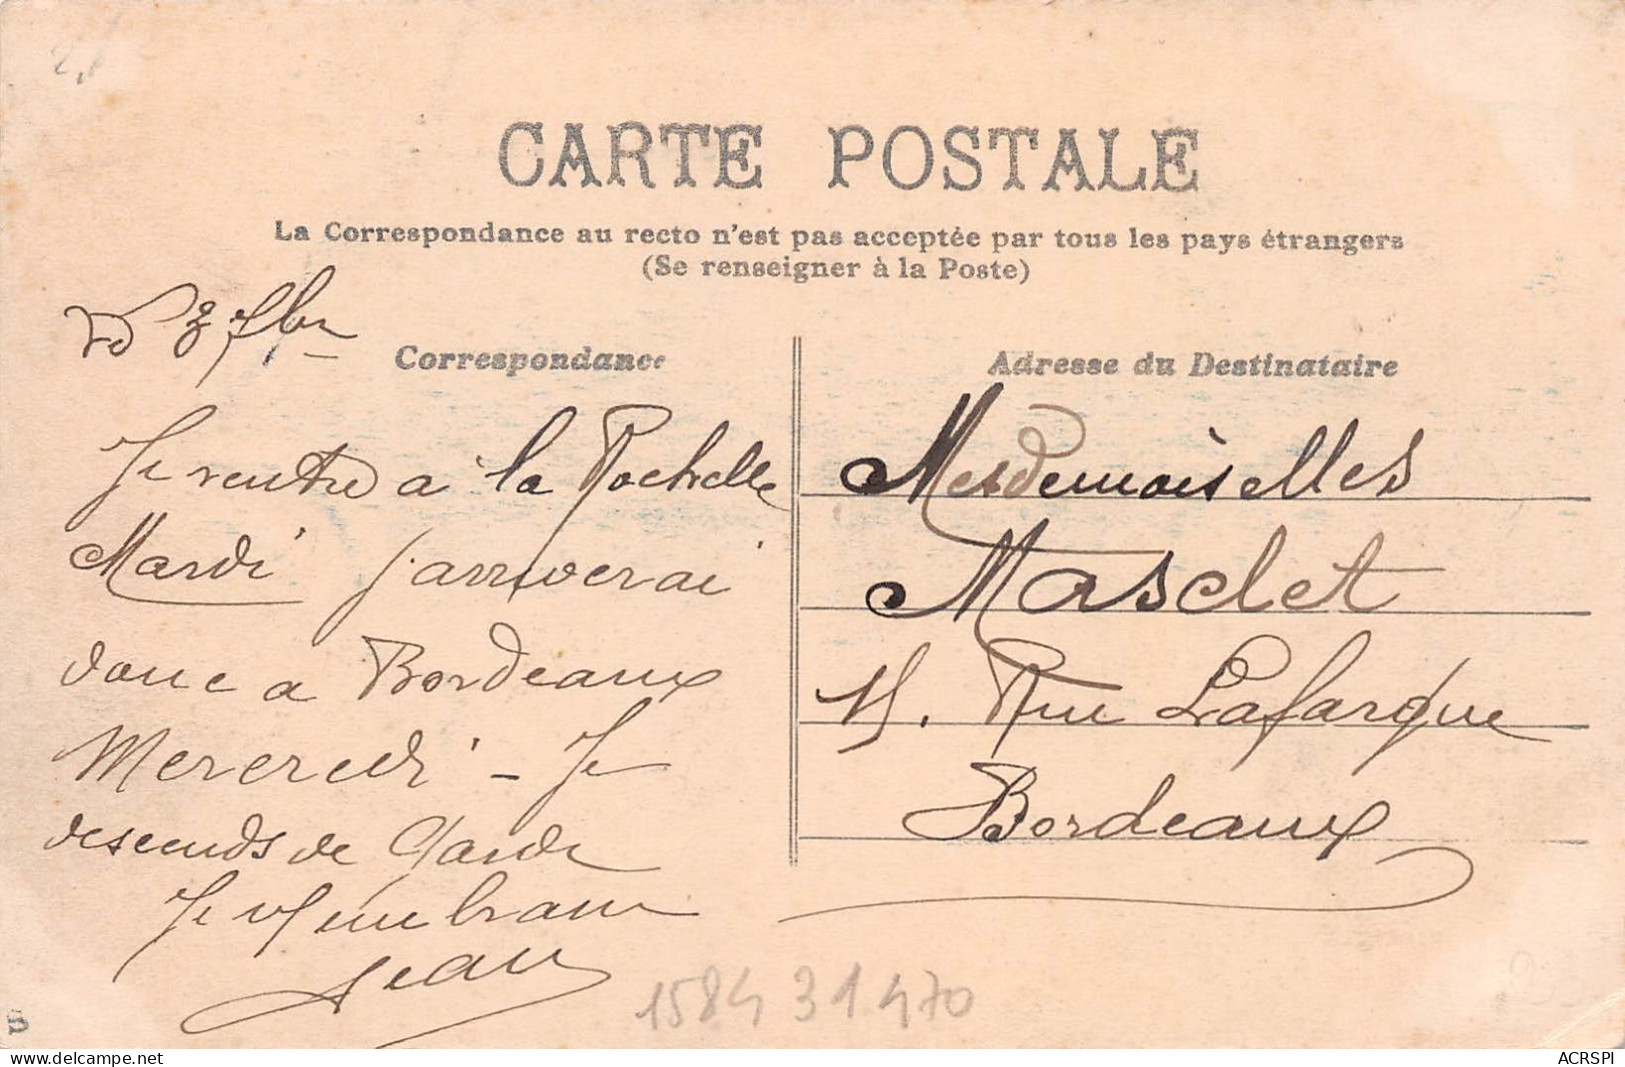 CARTE POSTALE
La Correspondance au recto n'est pas acceptée par tous les pays étrangers
(Se renseigner à la Poste)
8 7bre
Correspondance
Je rentre à la Rochelle
Mardi j'arriverai
donc a Bordeaux
Mercredi - Je
descends de Garde
Je vs embrasse
Jean
Adresse du Destinataire
Mesdemoiselles
Masclet
15. Rue Lafargue
Bordeaux
1584 31 470
delcampe.net
ACRSPI